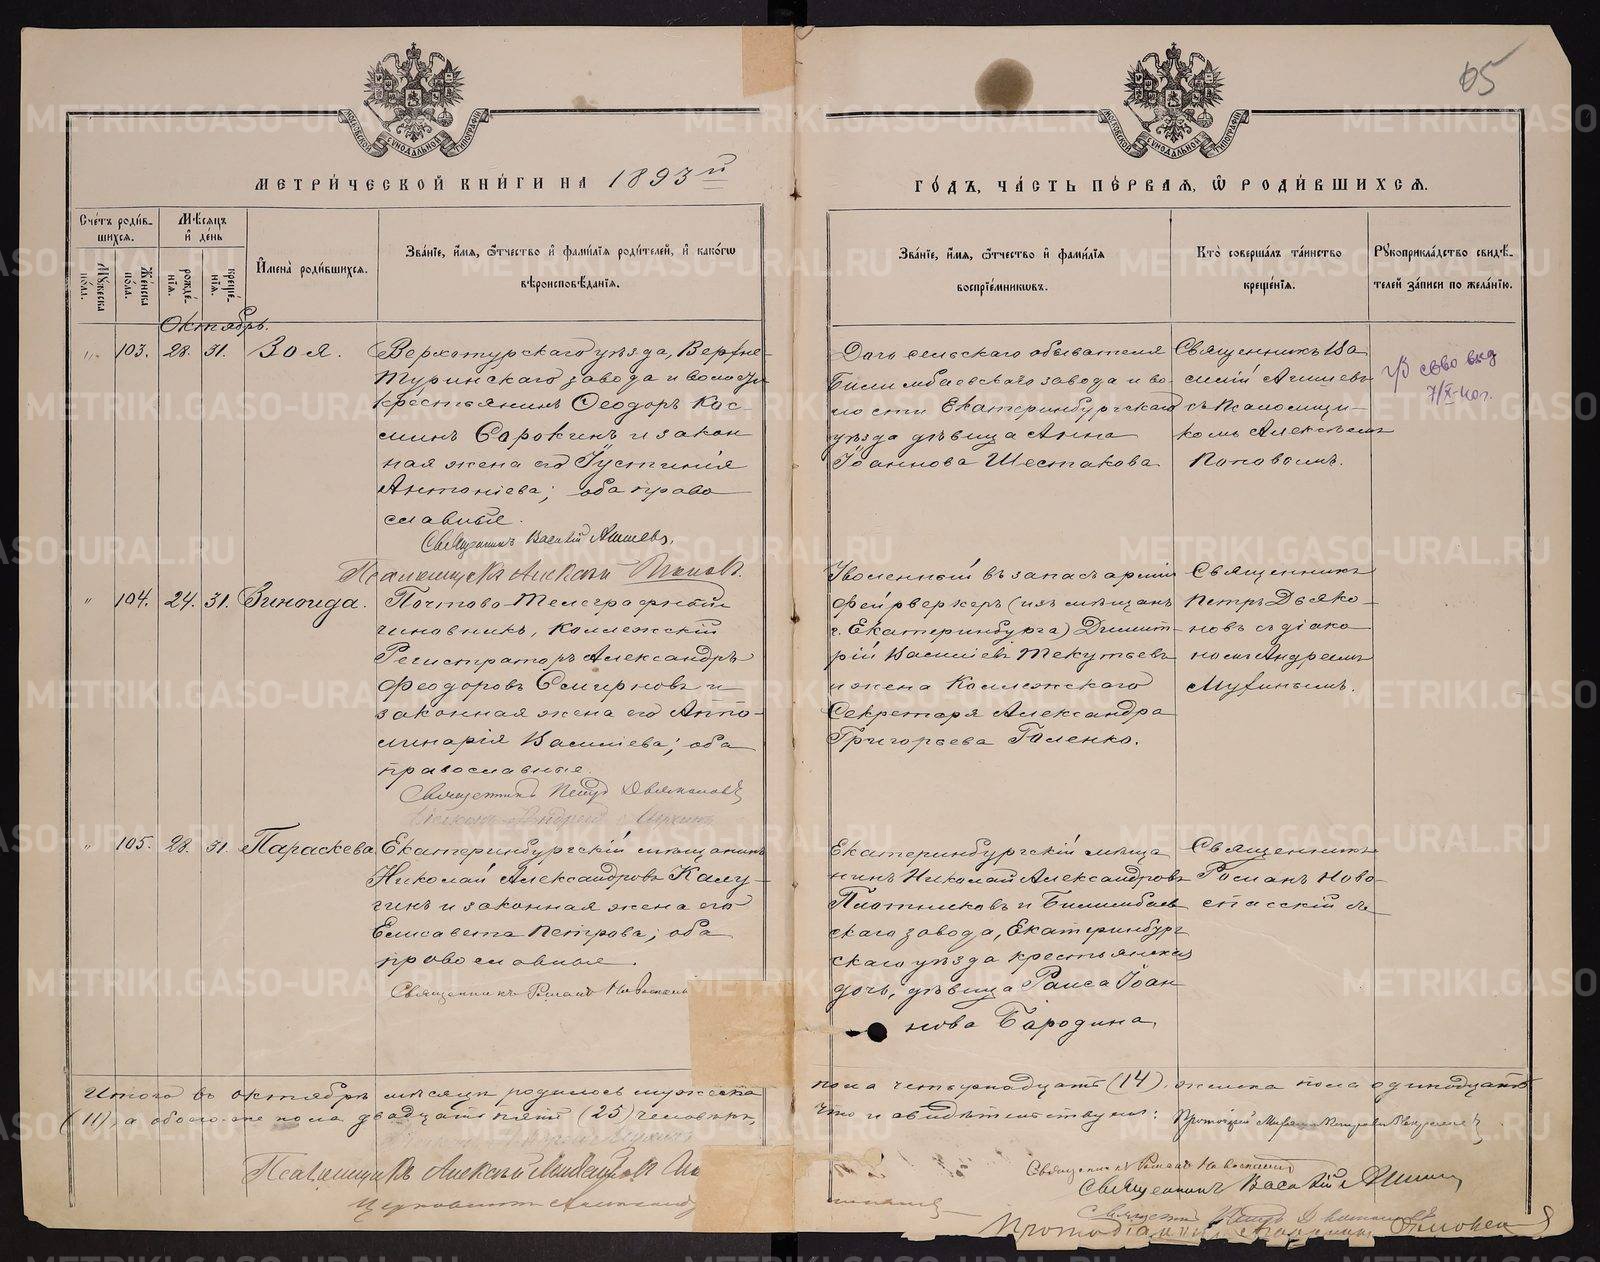 65
МОСКОВСКОЙ СѴНОДАЛЬНОЙ ТИПОГРАФІИ
МОСКОВСКОЙ СѴНОДАЛЬНОЙ ТИПОГРАФІИ
МЕТРИ́ЧЕСКОЙ КНИ́ГИ НА 1893й
ГО́ДЪ, ЧА́СТЬ ПЕ́РВАЯ, Ѿ РОДИ́ВШИХСЯ.
Сче́тъ роди́в-
шихся.
Мѣ́сяцъ
и҆ де́нь
Му́жеска по́ла.
Же́нска по́ла.
рожде́-
нїя.
креще́-
нїя.
И҆мена̀ роди́вшихся.
Зва́нїе, и҆́мя, ѻ҆́тчество и҆ фами́лїя роди́телей, и҆ како́гѡ
вѣроисповѣ́данїя.
Зва́нїе, и҆́мя, ѻ҆́тчество и҆ фами́лїя
воспрїе́мникѡвъ.
Кто̀ соверша́лъ та́инство
креще́нїя.
Рꙋкоприкла́дство свидѣ́-
телей за́писи по жела́нїю.
Октябрь.
" 103. 28. 31. Зоя.
Верхотурскаго уѣзда, Верхне-
Туринскаго завода и волости
крестьянинъ Ѳеодоръ Кос-
минъ Сорокинъ и закон
ная жена его Іустинія
Антоніева; оба право
славные.
Священникъ Василій Агишевъ.
Псаломщикъ Алексѣй Поповъ.
Дочь сельскаго обывателя
Билимбаевскаго завода и во-
лости Екатеринбургскаго
уѣзда дѣвица Анна
Іоаннова Шестакова
Священникъ Ва
силій Агишевъ
съ псаломщи-
комъ Алексѣемъ
Поповымъ.
" 104. 24. 31. Зинаида.
Почтово-Телеграфный
чиновникъ, Коллежскій
Регистраторъ Александръ
Ѳеодоровъ Смирновъ и
законная жена его Аппо-
линарія Василіева; оба
православные.
Священникъ Петръ Дьяконовъ
Уволенный въ запасъ арміи
фейрверкеръ (изъ мѣщанъ
г. Екатеринбурга) Димит-
рій Василіевъ Текутьевъ
и жена Коллежскаго
Секретаря Александра
Григорьева Галенко.
Священникъ
Петръ Дьяко-
новъ съ діако
номъ Андреемъ
Мухинымъ.
" 105. 28. 31. Параскева
Екатеринбургскій мѣщанинъ
Николай Александровъ Калу-
гинъ и законная жена его
Елисавета Петрова; оба
православные.
Священникъ Романъ Новоспасскій
Екатеринбургскій мѣща
нинъ Николай Александровъ
Плотниковъ и Билимбаев
скаго завода, Екатеринбург
скаго уѣзда крестьянская
дочь, дѣвица Раиса Іоан
нова Бародина.
Священникъ
Романъ Ново-
спасскій
Итого въ октябрѣ мѣсяцѣ родилось мужеска
пола четырнадцать (14), женска пола одинадцать
(11), а обоего-же пола двадцать пять (25) человѣкъ,
что и свидѣтельствуемъ: Протоіерей
Псаломщикъ Алексѣй
Священникъ Романъ Новоспасскій
Священникъ Василій Агишевъ
Священникъ Петръ Дьяконовъ